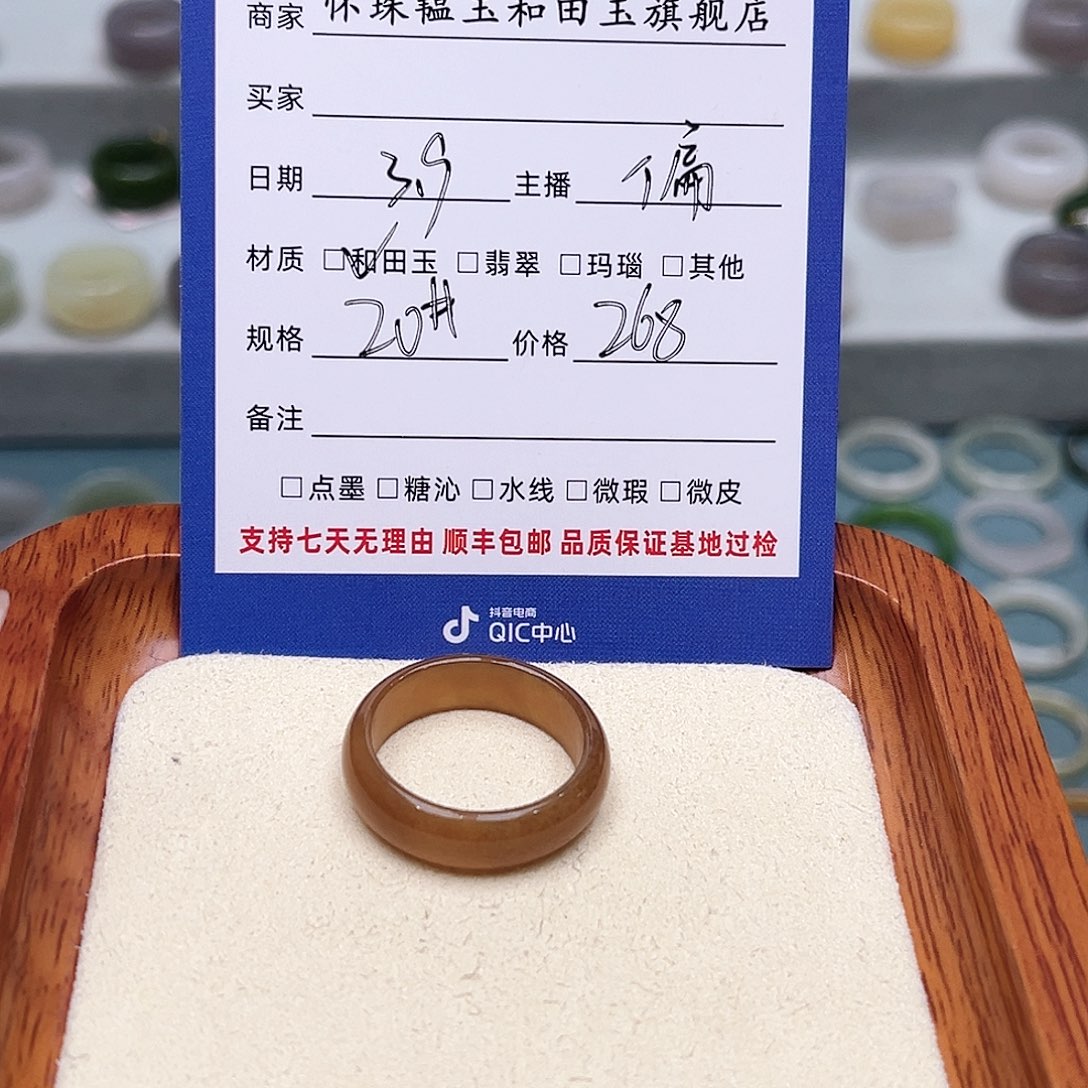 商家 怀珠韫玉和田玉旗舰店
买家
日期 3.9 主播 偏
材质 ☑和田玉 □翡翠 □玛瑙 □其他
规格 20# 价格 268
备注
□点墨 □糖沁 □水线 □微瑕 □微皮
支持七天无理由 顺丰包邮 品质保证基地过检
抖音电商
QIC中心